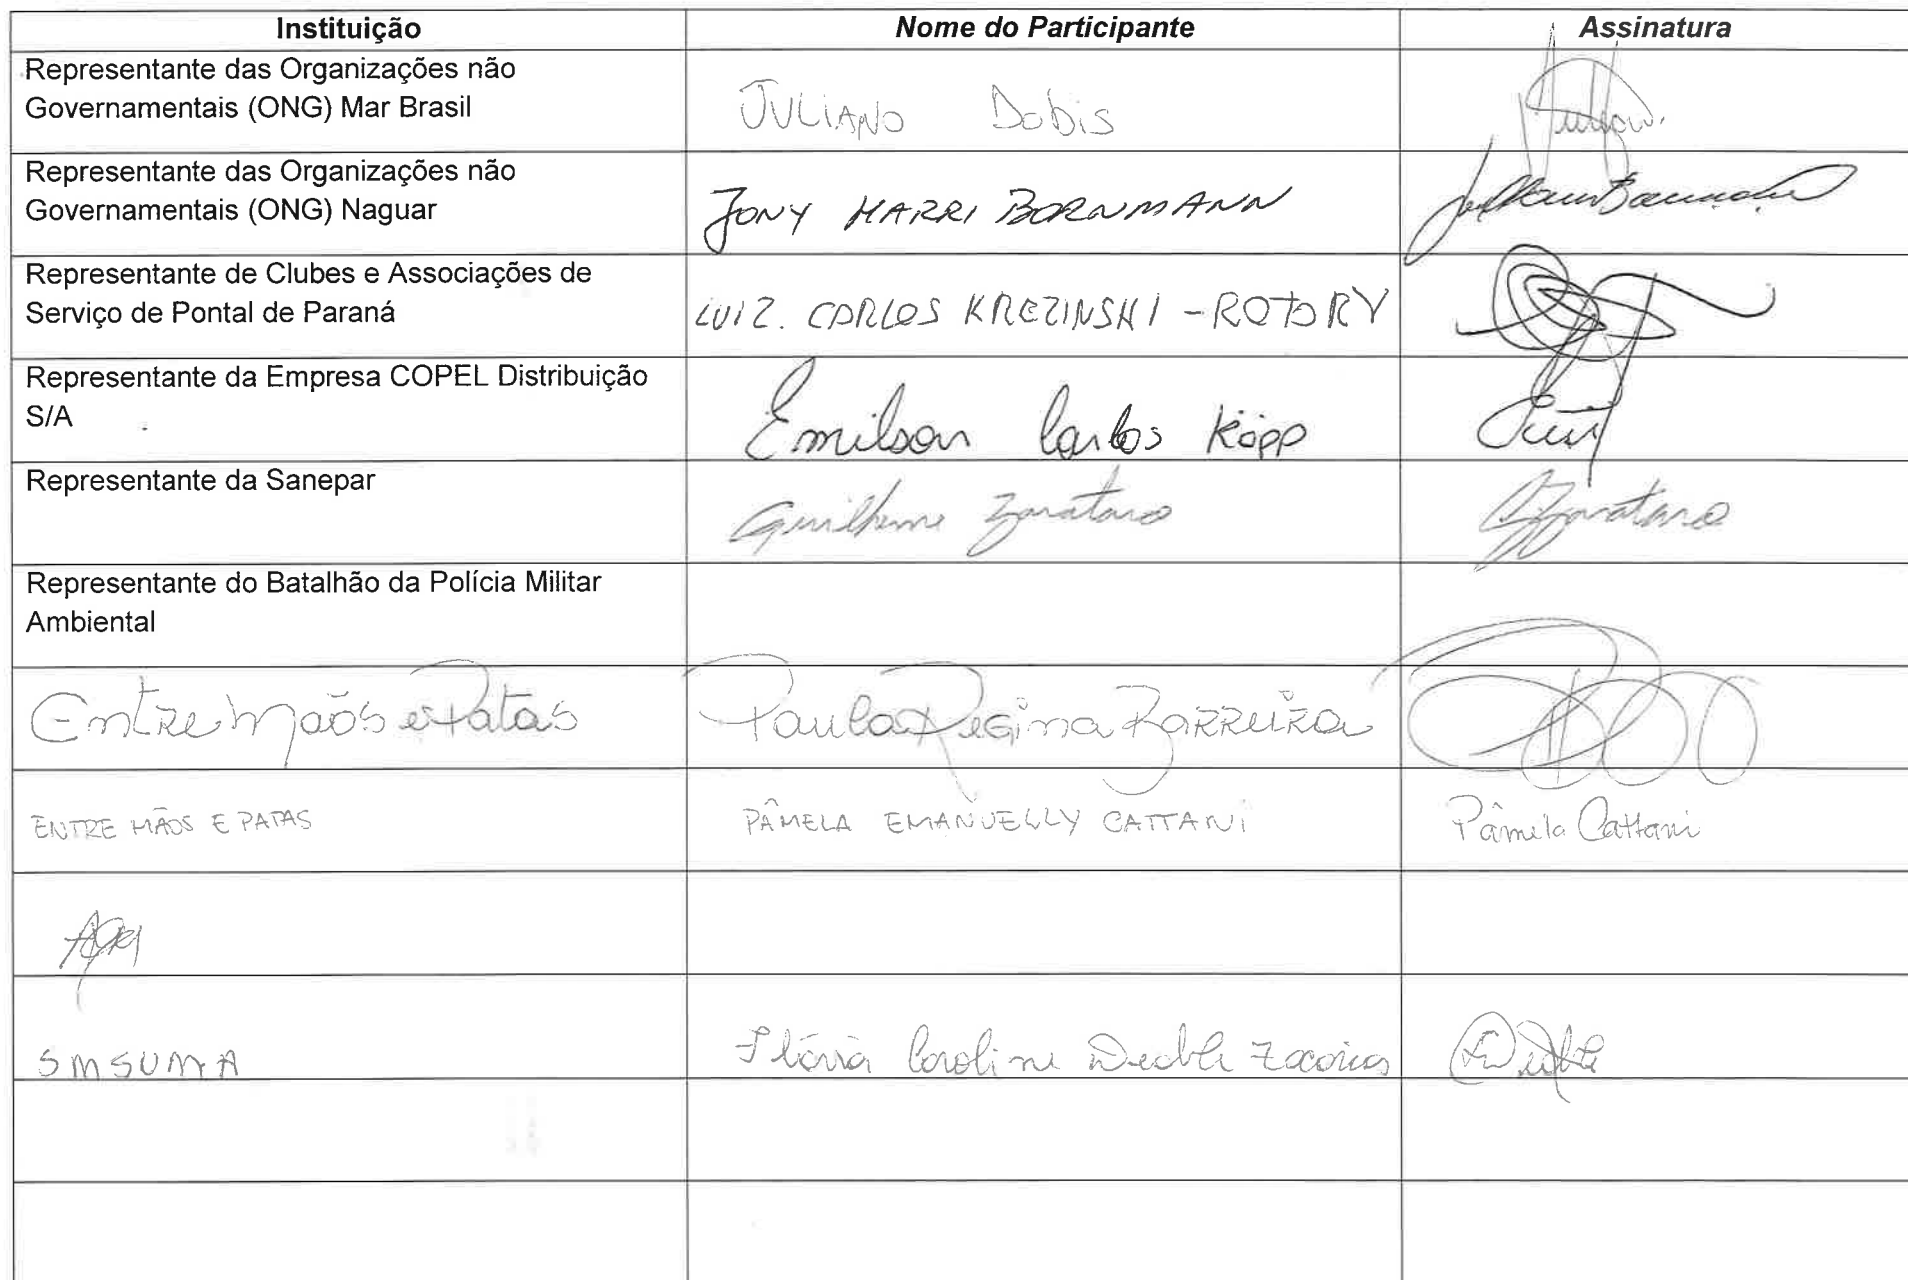 Instituição Nome do Participante Assinatura
Representante das Organizações não
Governamentais (ONG) Mar Brasil
JULIANO DOBIS
Representante das Organizações não
Governamentais (ONG) Naguar
JONY HARRI BORNMANN
Representante de Clubes e Associações de
Serviço de Pontal de Paraná
LUIZ. CARLOS KREZINSKI - ROTARY
Representante da Empresa COPEL Distribuição
S/A
Emilson Carlos Köpp
Representante da Sanepar
Guilherme Zavataro
Representante do Batalhão da Polícia Militar
Ambiental
Entre Mãos e Patas Paula Regina Barreira
ENTRE MÃOS E PATAS PÂMELA EMANUELLY CATTANI Pâmela Cattani
SMSUMA Flávia Caroline Deable Zacarias